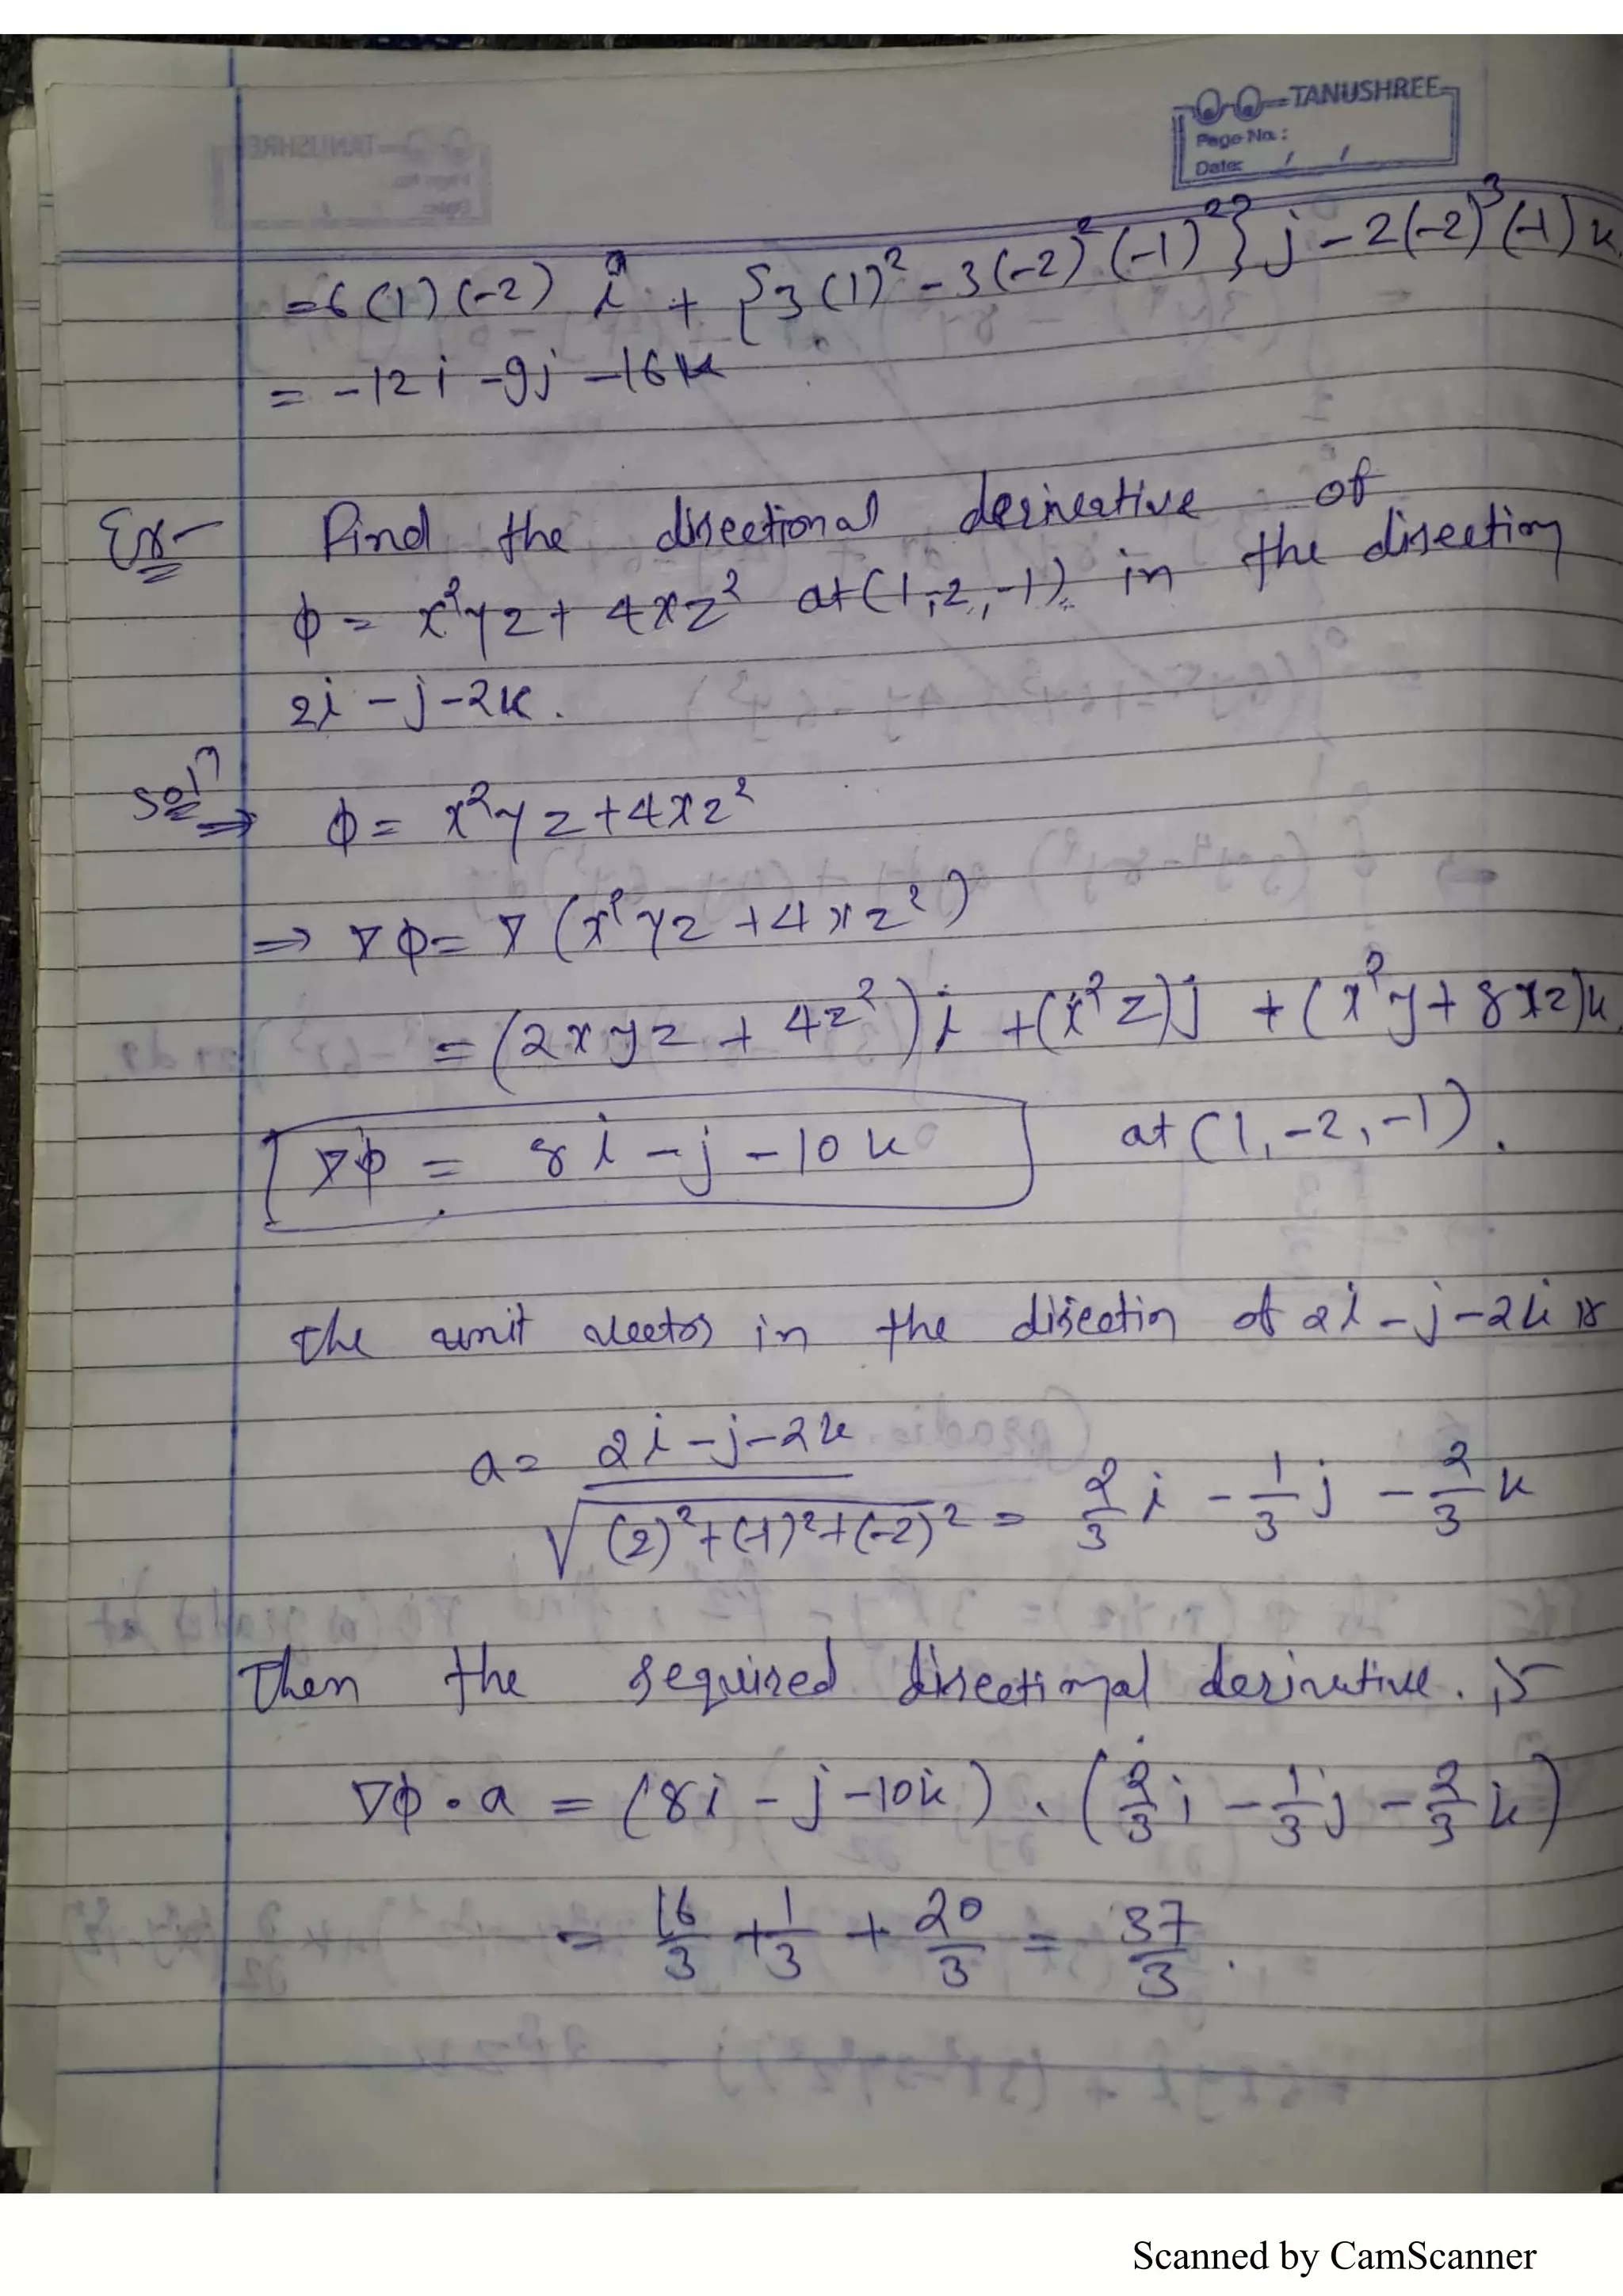 TANUSHREE
Page No.:
Date: / /
= 6(1)(-2) i + {3(1)² - 3(-2)²(-1)²} j - 2(-2)³(-1) k
= -12i - 9j - 16k
Ex- Find the directional derivative of
ϕ = x²yz + 4xz² at (1,-2,-1) in the direction
2i - j - 2k.
Solⁿ ⇒ ϕ = x²yz + 4xz²
⇒ ∇ϕ = ∇(x²yz + 4xz²)
= (2xyz + 4z²) i + (x²z) j + (x²y + 8xz) k
∇ϕ = 8i - j - 10k at (1,-2,-1).
The unit vector in the direction of 2i - j - 2k is
a = 2i - j - 2k / √(2)²+(-1)²+(-2)² = 2/3 i - 1/3 j - 2/3 k
Then the required directional derivative is
∇ϕ · a = (8i - j - 10k) . (2/3 i - 1/3 j - 2/3 k)
= 16/3 + 1/3 + 20/3 = 37/3.
Scanned by CamScanner